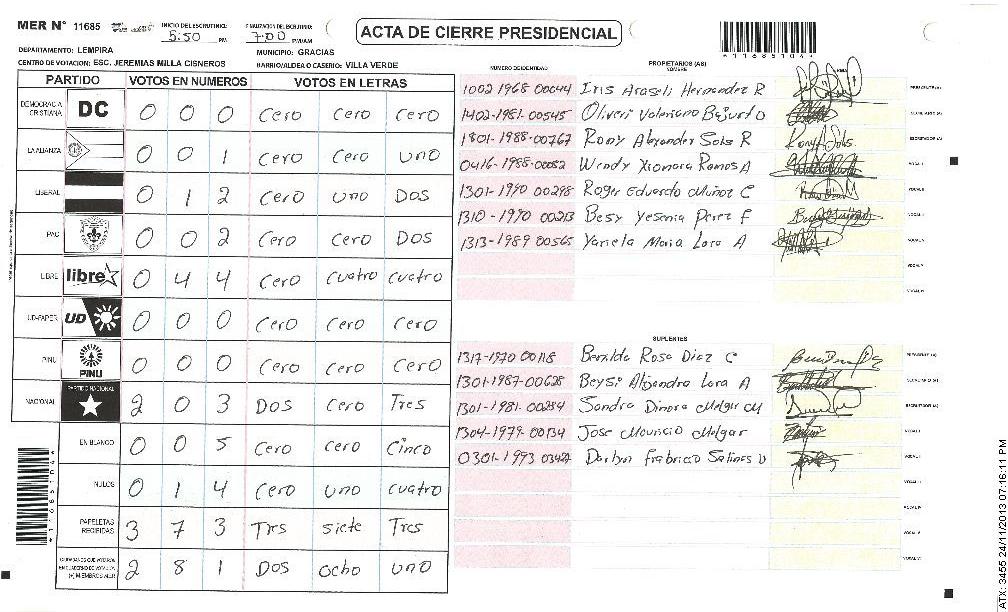 MER N° 11685
INICIO DEL ESCRUTINIO: 5:50 PM
FINALIZACION DEL ESCRUTINIO: 7:00 PM/AM
ACTA DE CIERRE PRESIDENCIAL
*11685104*
DEPARTAMENTO: LEMPIRA
MUNICIPIO: GRACIAS
CENTRO DE VOTACION: ESC. JEREMIAS MILLA CISNEROS
BARRIO/ALDEA O CASERIO: VILLA VERDE
PARTIDO VOTOS EN NUMEROS VOTOS EN LETRAS
DEMOCRACIA CRISTIANA DC 0 0 0 Cero Cero Cero
LA ALIANZA 0 0 1 Cero Cero uno
LIBERAL 0 1 2 Cero uno Dos
PAC 0 0 2 Cero Cero Dos
LIBRE libre 0 4 4 Cero Cuatro Cuatro
UD-FAPER UD 0 0 0 Cero Cero Cero
PINU PINU 0 0 0 Cero Cero Cero
NACIONAL PARTIDO NACIONAL 2 0 3 Dos Cero Tres
EN BLANCO 0 0 5 Cero Cero Cinco
NULOS 0 1 4 Cero uno Cuatro
PAPELETAS RECIBIDAS 3 7 3 Tres siete Tres
CIUDADANOS QUE VOTARON EN CUADERNO DE VOTACION (+) MIEMBROS MER 2 8 1 Dos ocho uno
NUMERO DE IDENTIDAD PROPIETARIOS (AS) NOMBRE FIRMA
1002 1968 00044 Iris Araseli Hernandez R PRESIDENTE (A)
1402-1981-00545 Oliveri Valeriano SECRETARIO (A)
1801-1988-00767 Rony Alexander Solis R ESCRUTADOR (A)
0416-1988-00052 Wendy Xiomara Ramos A VOCAL I
1301-1990 00298 Roger Eduardo Muñoz C VOCAL II
1310-1990 00213 Besy Yesenia Perez F VOCAL III
1313-1989 00565 Yariela Maria Lara A VOCAL IV
VOCAL V
VOCAL VI
SUPLENTES
1317-1970 00118 Benilda Rosa Diaz C PRESIDENTE (A)
1301-1987-00628 Beysi Alejandra Lara A SECRETARIO (A)
1301-1981-00284 Sandra Dinora Melgar M ESCRUTADOR (A)
1304-1979-00134 Jose Mauricio Melgar VOCAL I
0301-1993 Darlyn Frabricio Salinas VOCAL II
VOCAL III
VOCAL IV
VOCAL V
VOCAL VI
*11685104*
ATX: 3455 24/11/2013 07:16:11 PM